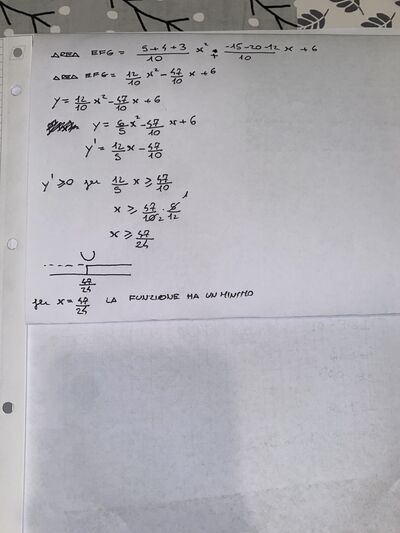 AREA EFG = (5+4+3)/10 x² + (-15-20-12)/10 x + 6
AREA EFG = 12/10 x² - 47/10 x + 6
y = 12/10 x² - 47/10 x + 6
y = 6/5 x² - 47/10 x + 6
y' = 12/5 x - 47/10
y' ≥ 0 per 12/5 x ≥ 47/10
x ≥ 47/10 2 · 5/12 1
x ≥ 47/24
47/24
per x = 47/24 LA FUNZIONE HA UN MINIMO